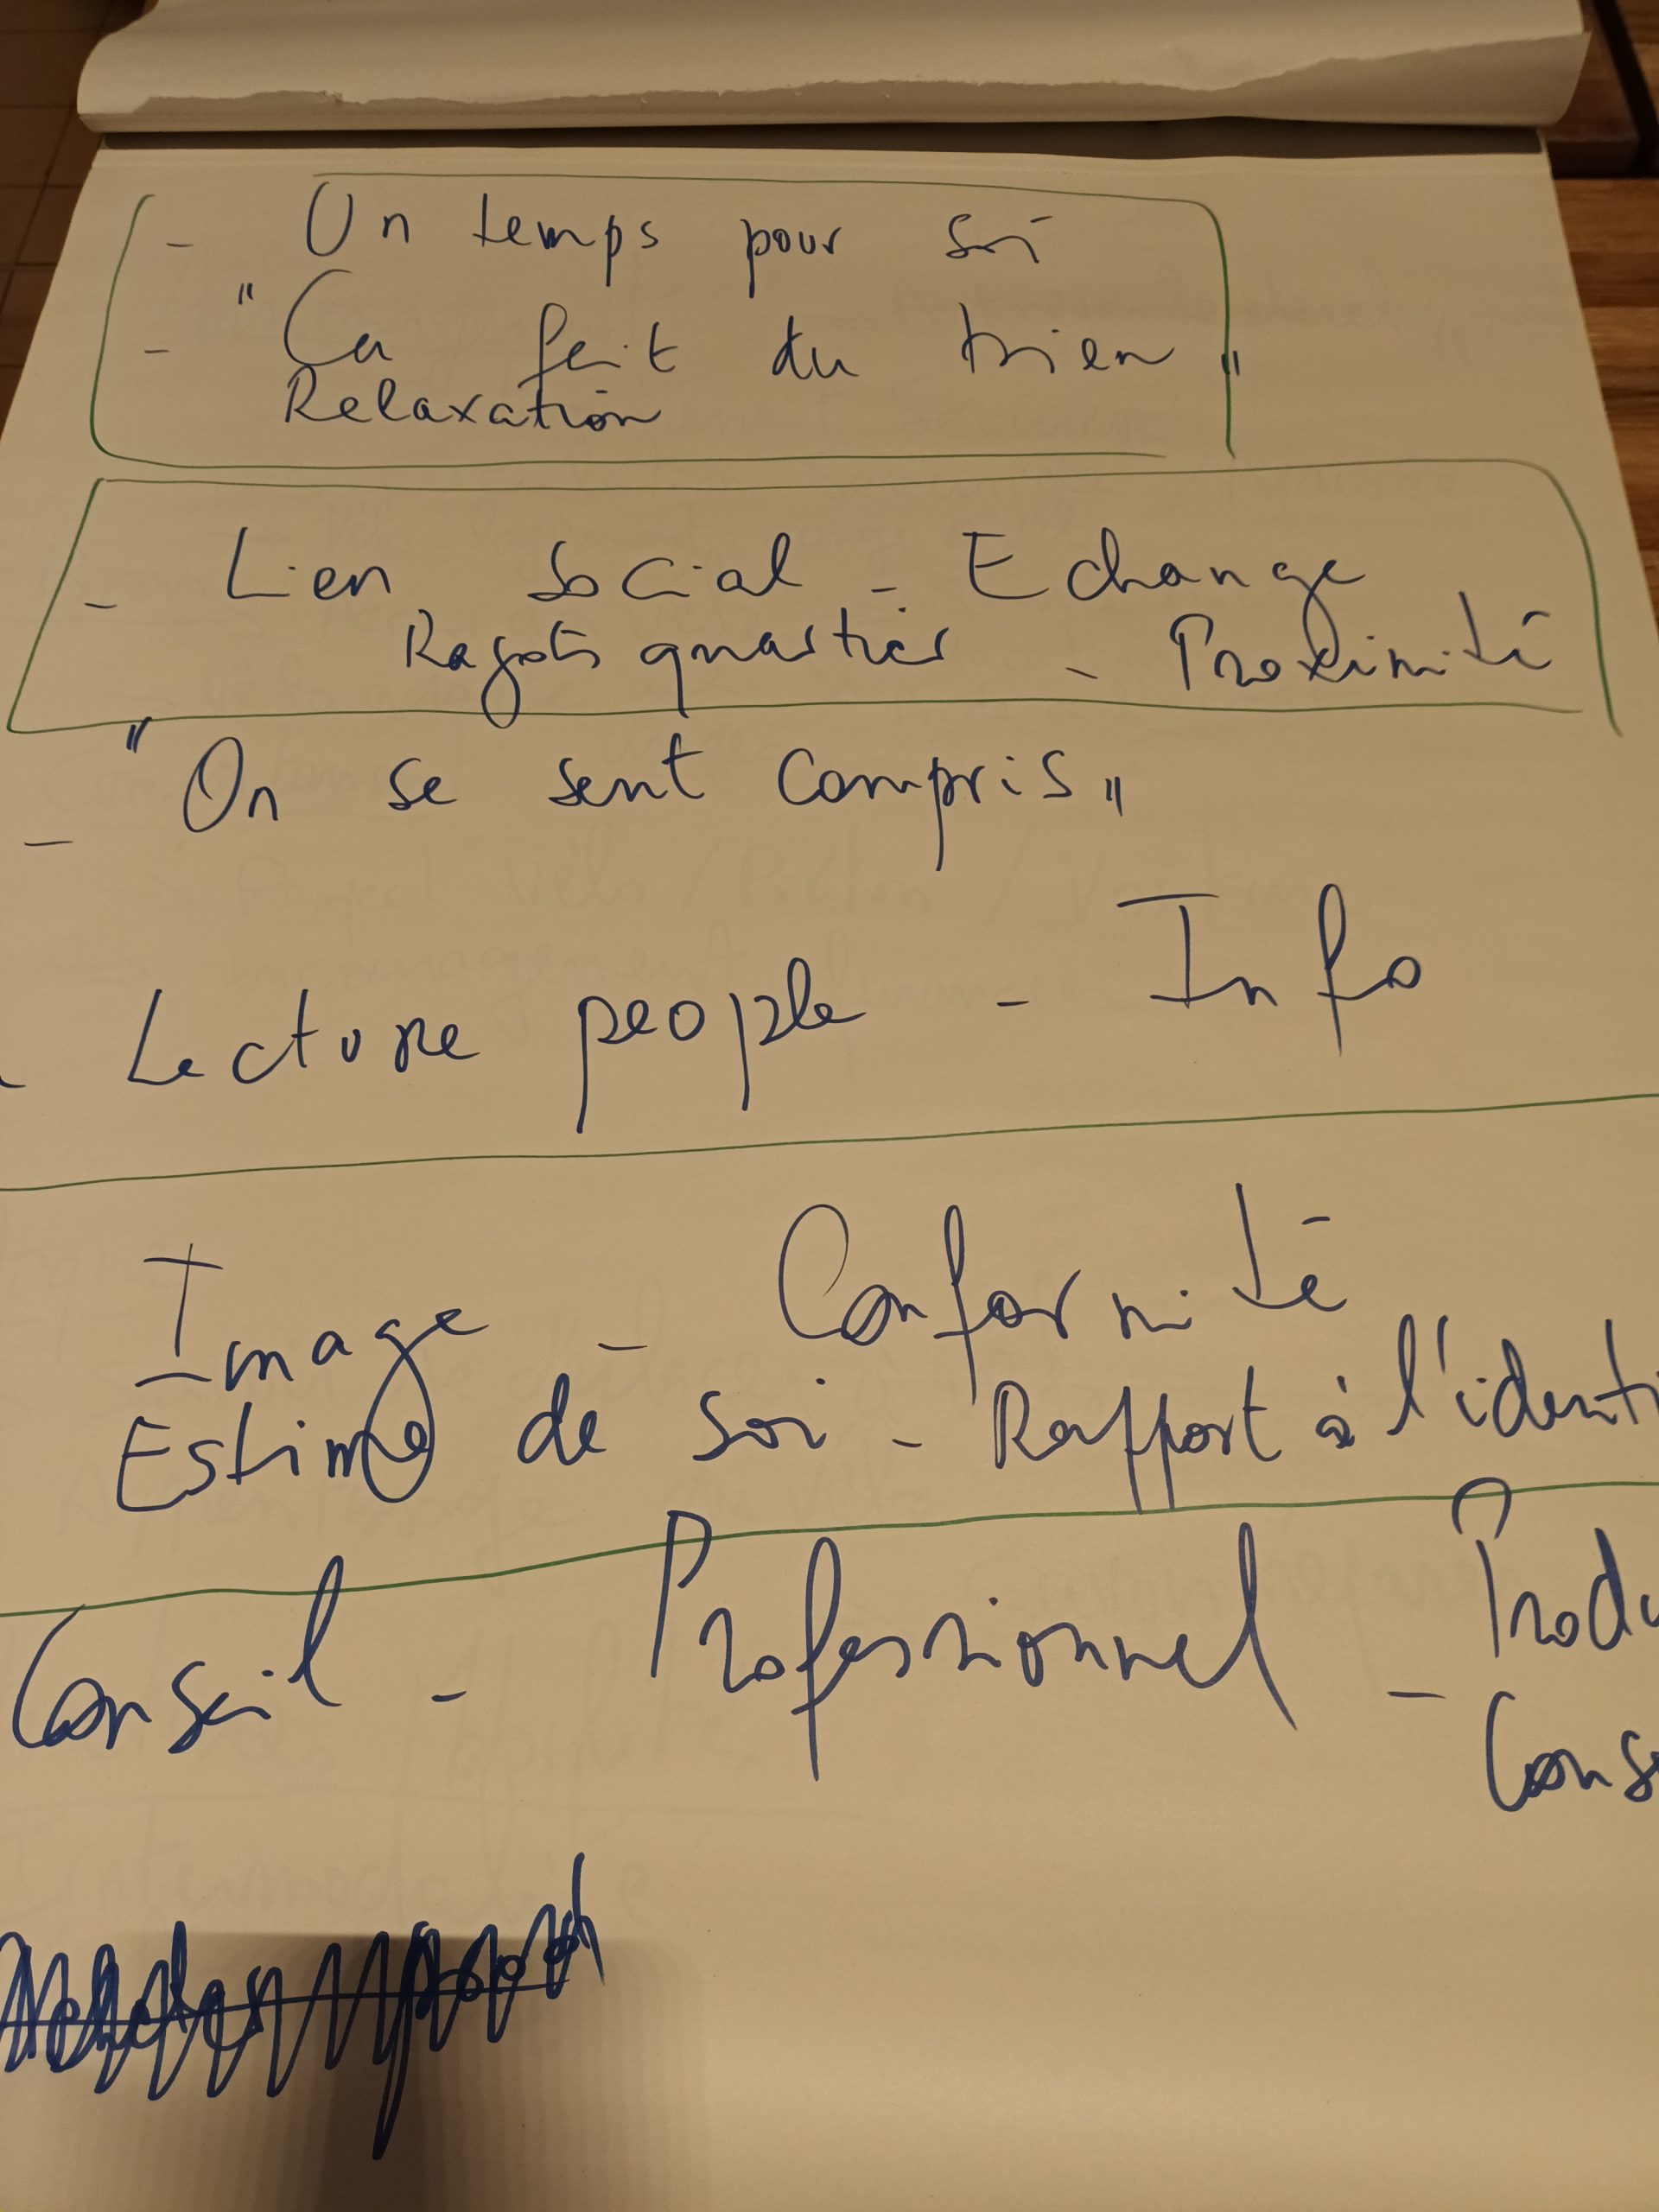 - Un temps pour soi
- "Ca fait du bien"
Relaxation
- Lien social - Echange
Ragots quartier - Proximité
- "On se sent compris"
- Lecture people - Info
Image - Conformité
Estime de soi - Rapport à l'identi
Conseil - Professionnel - Produ
Cons